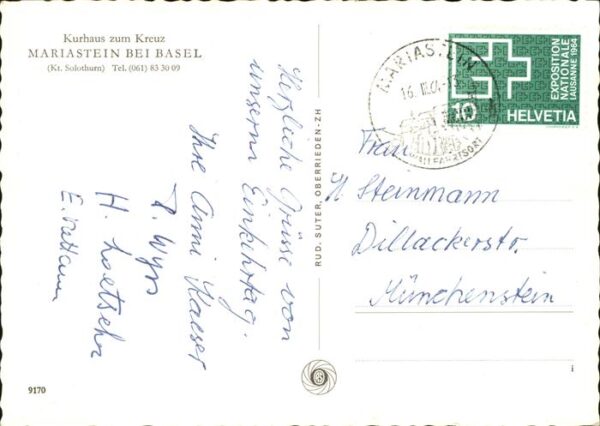 Kurhaus zum Kreuz
MARIASTEIN BEI BASEL
(Kt. Solothurn) Tel. (061) 83 30 09
Herzliche Grüsse von
unserm Einkehrtag.
Ihre Anni Kaeser
P. Wyss
H. Loetscher
E.
RUD. SUTER, OBERRIEDEN-ZH
9170
MARIASTEIN
16. III. 64 - 15
WALLFAHRTSORT
EXPOSITION
NATIONALE
LAUSANNE 1964
10 HELVETIA
Frau
H Steinmann
Dillackerstr.
Münchenstein
i